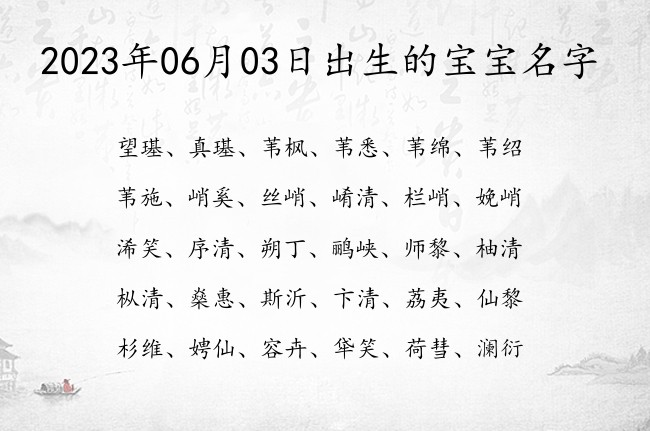 2023年06月03日出生的宝宝名字
望琎、真琎、苇枫、苇悉、苇绵、苇绍
苇施、峭奚、丝峭、崤清、栏峭、娩峭
浠笑、序清、朔丁、鹂峡、师黎、柚清
枞清、燊惠、斯沂、卞清、荔夷、仙黎
杉维、娉仙、容卉、荜笑、荷彗、澜衍